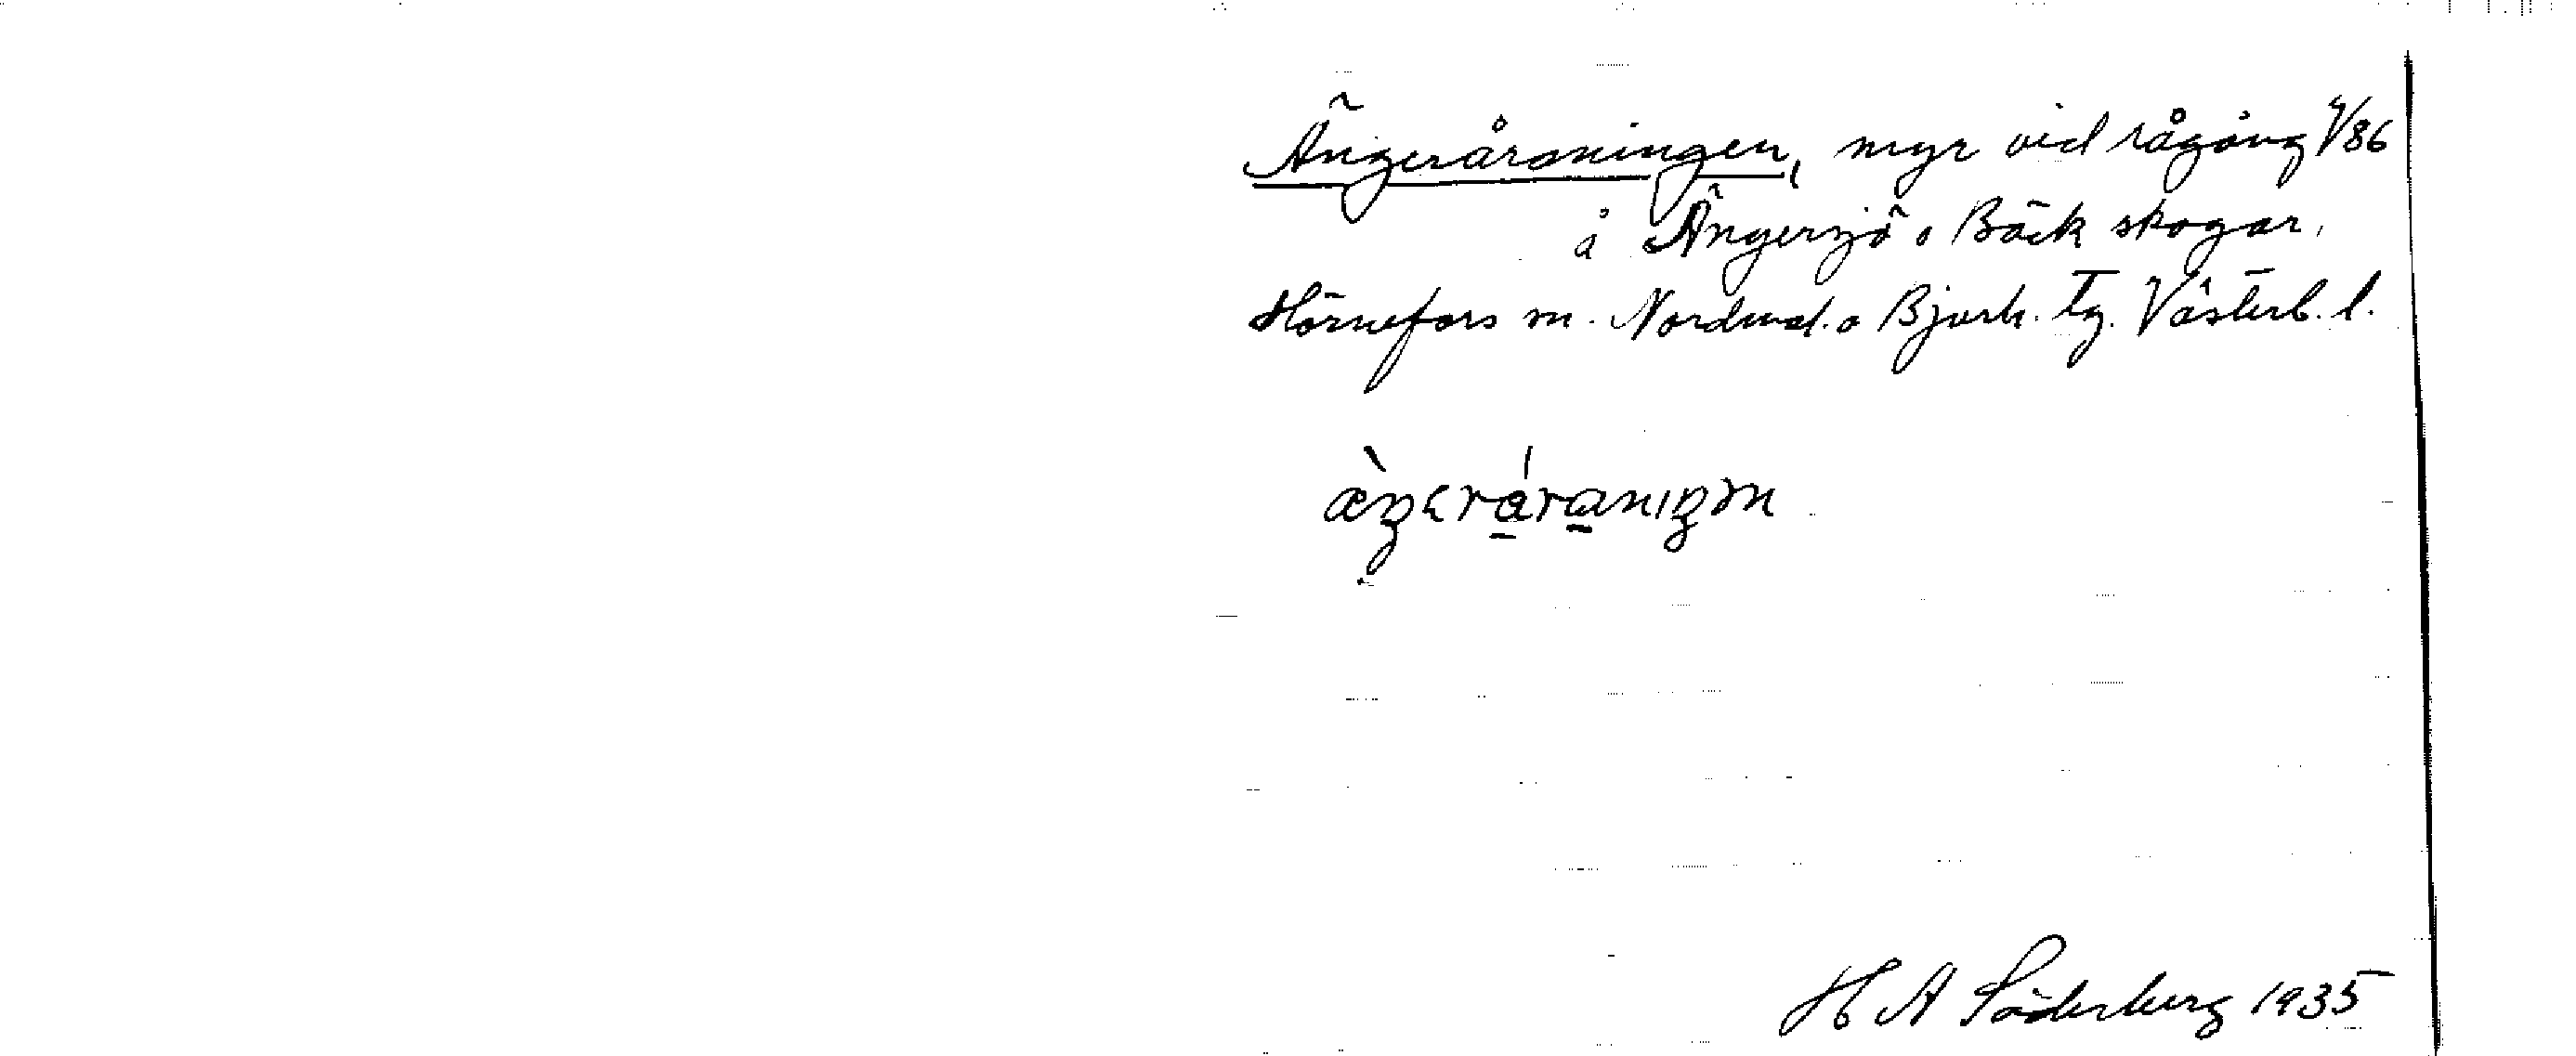 Ängeråraningen, myr vid rågång 4/86
å Ängersjö o Bäck skogar,
Hörnefors m. Nordmal. o Bjurh. Tg. Västerb. l.
H A Söderberg 1935